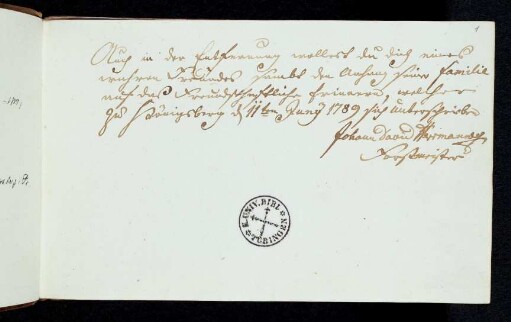 1
Auch in der Entfernung wollest du dich eines
wahren Freundes sambt den Anhang seiner Familie
auch das Freundschaftliche erinnern, welcher
zu Königsberg d 11ten Juny 1789 sich unterschrieben
Johann David
Forstmeister
K. UNIV. BIBL. TÜBINGEN